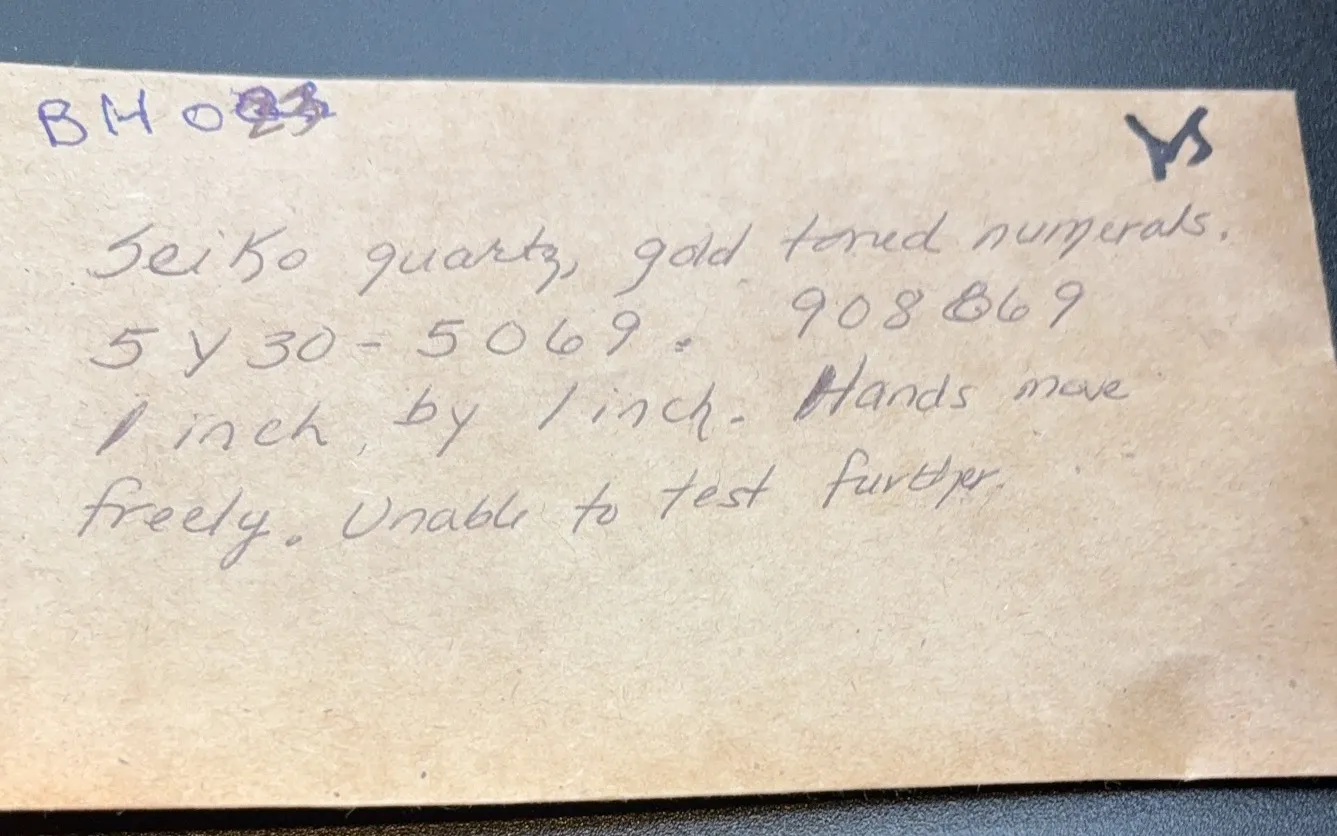 BH023
Seiko quartz, gold toned numerals.
5Y30-5069. 908869
1 inch, by 1 inch. Hands move
freely. Unable to test further.